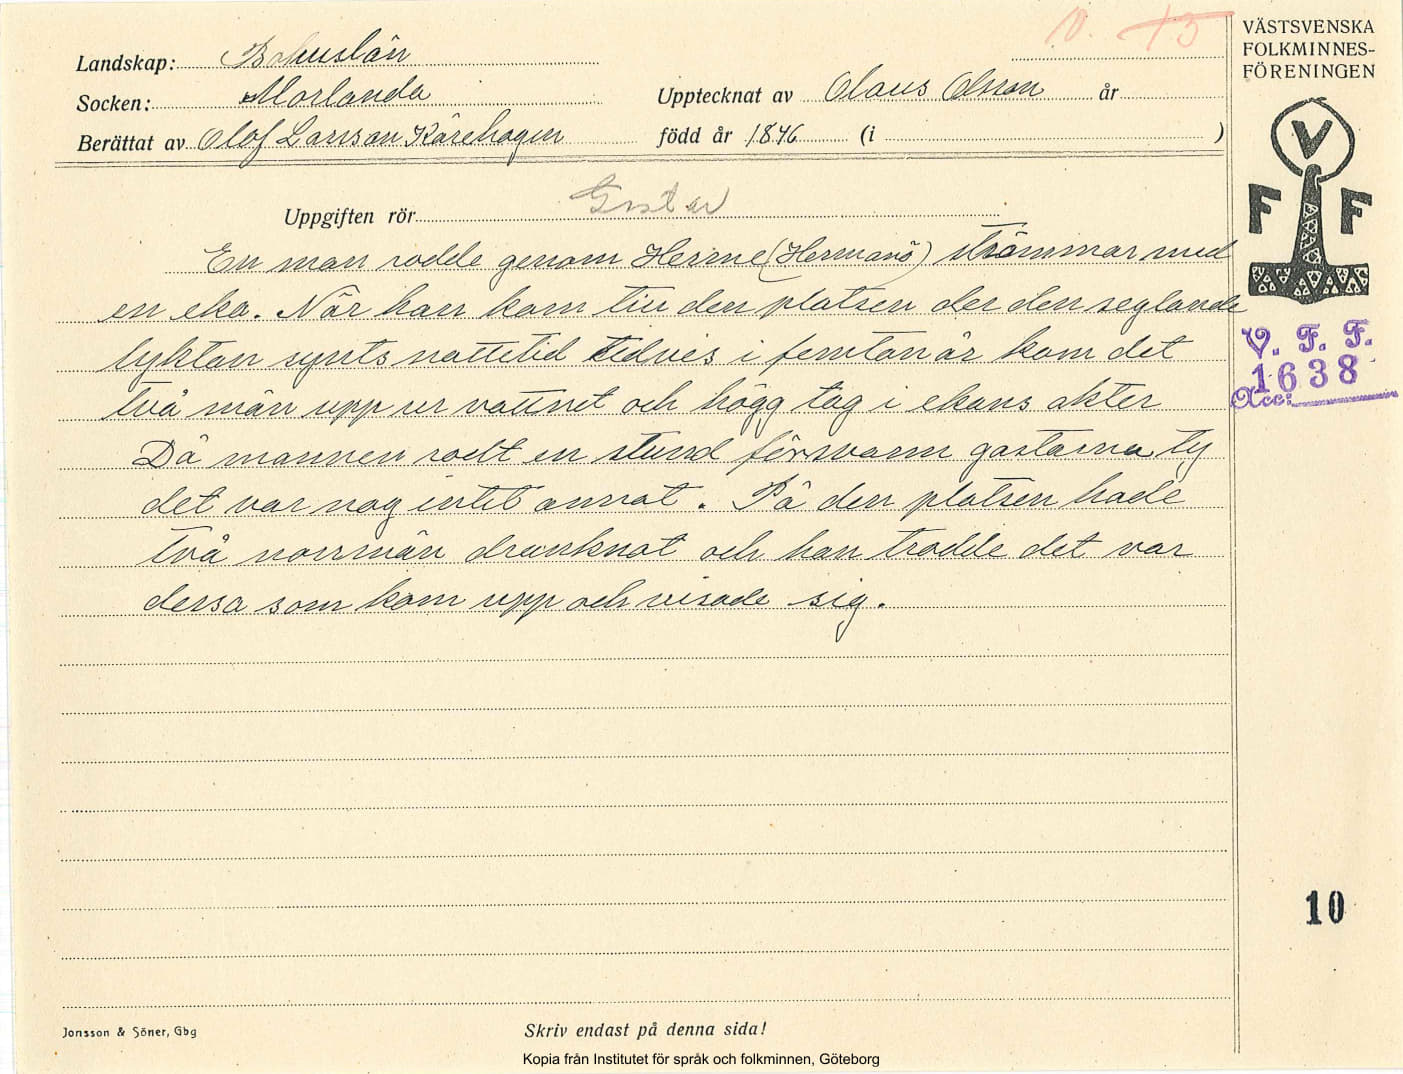 Landskap: Bohuslän
Socken: Morlanda
Upptecknat av Olaus Olsson år
Berättat av Olof Larsson Kårehogen
född år 1846 (i )
VÄSTSVENSKA
FOLKMINNES-
FÖRENINGEN
V
F F
V. F. F.
1638
Acc:
Uppgiften rör Gastar
En man rodde genom Herme (Hermanö) strömmar med
en eka. När han kom till den platsen der den seglande
lyktan synts nattetid tidvis i femton år kom det
två män upp ur vattnet och högg tag i ekans akter
Då mannen rodt en stund försvann gastarna ty
det var nog intet annat. På den platsen hade
två norrmän drunknat och han trodde det var
dessa som kom upp och visade sig.
10
Jonsson & Söner, Gbg
Skriv endast på denna sida!
Kopia från Institutet för språk och folkminnen, Göteborg